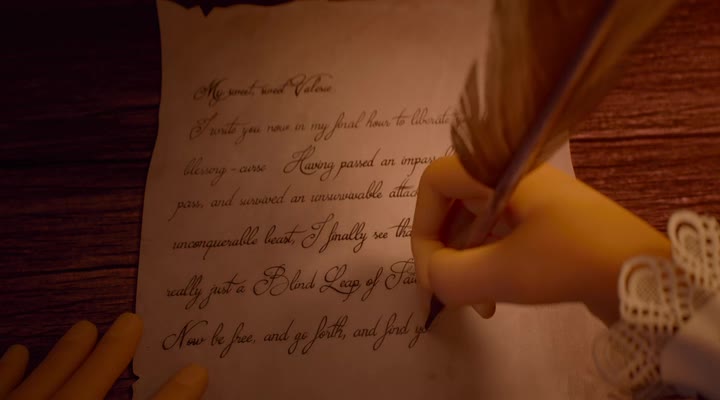 My sweet, sweet Valerie
I write you now in my final hour to liberate
blessing - curse Having passed an impass
pass, and survived an unsurvivable attac
unconquerable beast, I finally see tha
really just a Blind Leap of Fai
Now be free, and go forth, and find yo